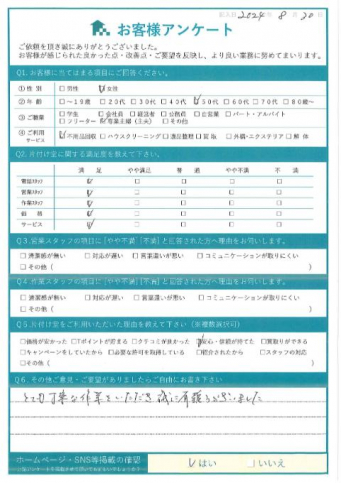 記入日 2024年 8月 20日
お客様アンケート
ご依頼を頂き誠にありがとうございました。
お客様が感じられた良かった点・改善点・ご要望を反映し、より良い業務に努めてまいります。
Q1. お客様に当てはまる項目にご回答ください。
①性 別 □男性 □女性
②年 齢 □～19歳 □20代 □30代 □40代 □50代 □60代 □70代 □80歳～
③ご職業 □学生 □会社員 □経営者 □公務員 □自営業 □パート・アルバイト
□フリーター □専業主婦（主夫） □その他
④ご利用サービス □不用品回収 □ハウスクリーニング □遺品整理 □買取 □外構・エクステリア □解体
Q2. 片付け堂に関する満足度を教えて下さい。
満足 やや満足 普通 やや不満 不満
電話スタッフ □ □ □ □ □
営業スタッフ □ □ □ □ □
作業スタッフ □ □ □ □ □
価 格 □ □ □ □ □
サービス □ □ □ □ □
Q3. 営業スタッフの項目に［やや不満］［不満］と回答された方へ理由をお伺いします。
□清潔感が無い □対応が遅い □言葉遣いが悪い □コミュニケーションが取りにくい
□その他（ ）
Q4. 作業スタッフの項目に［やや不満］［不満］と回答された方へ理由をお伺いします。
□清潔感が無い □対応が遅い □言葉遣いが悪い □コミュニケーションが取りにくい
□その他（ ）
Q5. 片付け堂をご利用いただいた理由を教えて下さい（※複数選択可）
□価格が安かった □Tポイントが貯まる □クチコミが良かった □安心・信頼が持てた □買取りができる
□キャンペーンをしていたから □必要な許可を取得している □紹介されたから □スタッフの対応
□その他（ ）
Q6. その他ご意見・ご要望がありましたらご自由にお書き下さい
とても丁寧な作業をいただき誠に有難うございました
ホームページ・SNS等掲載の確認
□はい □いいえ